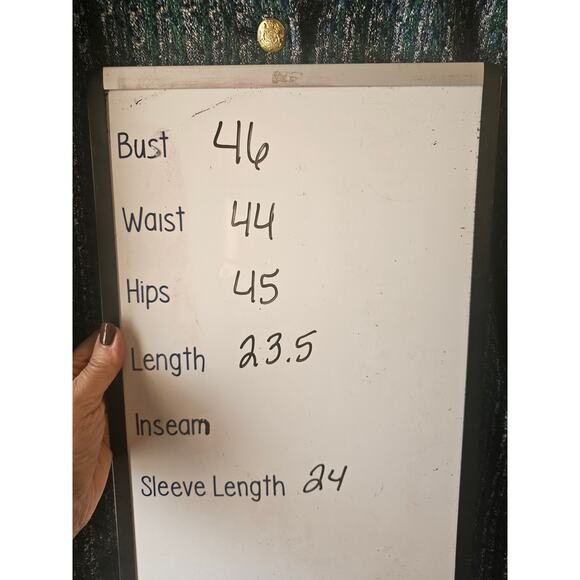 Bust 46
Waist 44
Hips 45
Length 23.5
Inseam
Sleeve Length 24